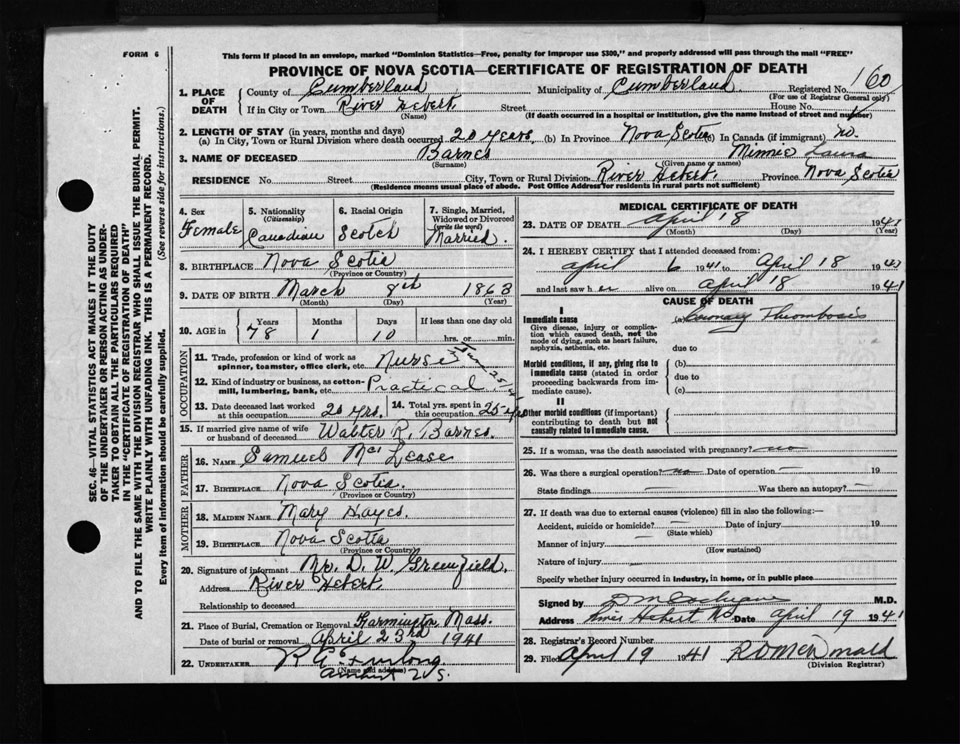 FORM 6
This form if placed in an envelope, marked "Dominion Statistics—Free, penalty for improper use $300," and properly addressed will pass through the mail "FREE"
PROVINCE OF NOVA SCOTIA—CERTIFICATE OF REGISTRATION OF DEATH
SEC. 46—VITAL STATISTICS ACT MAKES IT THE DUTY
OF THE UNDERTAKER OR PERSON ACTING AS UNDER-
TAKER TO OBTAIN ALL THE PARTICULARS REQUIRED
IN THE "CERTIFICATE OF REGISTRATION OF DEATH"
AND TO FILE THE SAME WITH THE DIVISION REGISTRAR WHO SHALL ISSUE THE BURIAL PERMIT.
WRITE PLAINLY WITH UNFADING INK. THIS IS A PERMANENT RECORD.
Every item of information should be carefully supplied. (See reverse side for instructions.)
1. PLACE OF DEATH County of Cumberland Municipality of Cumberland Registered No. 160
(For use of Registrar General only)
If in City or Town River Hebert Street House No.
(Name) (If death occurred in a hospital or institution, give the name instead of street and number)
2. LENGTH OF STAY (in years, months and days)
(a) In City, Town or Rural Division where death occurred 20 years (b) In Province Nova Scotia (c) In Canada (if immigrant) no.
3. NAME OF DECEASED Barnes Minnie Laura
(Surname) (Given name or names)
RESIDENCE No. Street City, Town or Rural Division River Hebert. Province Nova Scotia
(Residence means usual place of abode. Post Office Address for residents in rural parts not sufficient)
4. Sex Female
5. Nationality (Citizenship) Canadian
6. Racial Origin Scotch
7. Single, Married, Widowed or Divorced (write the word) Married.
8. BIRTHPLACE Nova Scotia
(Province or Country)
9. DATE OF BIRTH March 8th 1863
(Month) (Day) (Year)
10. AGE in Years 78 Months 1 Days 10 If less than one day hrs. or min.
OCCUPATION
11. Trade, profession or kind of work as spinner, teamster, office clerk, etc. Nurse
12. Kind of industry or business, as cotton-mill, lumbering, bank, etc. Practical
13. Date deceased last worked at this occupation 20 yrs.
14. Total yrs. spent in this occupation 25 yrs
15. If married give name of wife or husband of deceased Walter R. Barnes.
FATHER
16. NAME Samuel Mc Lease
17. BIRTHPLACE Nova Scotia.
(Province or Country)
MOTHER
18. MAIDEN NAME Mary Hayes.
19. BIRTHPLACE Nova Scotia
(Province or Country)
20. Signature of informant D. W. Greenfield.
Address River Hebert.
Relationship to deceased
21. Place of Burial, Cremation or Removal Farmington Mass.
Date of burial or removal April 23rd 1941
22. UNDERTAKER Furlong
(Name and address)
Amherst N.S.
MEDICAL CERTIFICATE OF DEATH
23. DATE OF DEATH April 18 1941
(Month) (Day) (Year)
24. I HEREBY CERTIFY that I attended deceased from:
April 6 1941 to April 18 1941
and last saw her alive on April 18 1941
CAUSE OF DEATH
I
Immediate cause (a) Coronary Thrombosis
Give disease, injury or complication which caused death, not the mode of dying, such as heart failure, asphyxia, asthenia, etc.
due to
Morbid conditions, if any, giving rise to immediate cause (stated in order proceeding backwards from immediate cause).
(b)
due to
(c)
II
Other morbid conditions (if important) contributing to death but not causally related to immediate cause.
25. If a woman, was the death associated with pregnancy? no
26. Was there a surgical operation? no Date of operation 19
State findings Was there an autopsy?
27. If death was due to external causes (violence) fill in also the following:—
Accident, suicide or homicide? Date of injury 19
(State which)
Manner of injury
(How sustained)
Nature of injury
Specify whether injury occurred in industry, in home, or in public place
Signed by D M Cochrane M.D.
Address River Hebert NS Date April 19 1941
28. Registrar's Record Number
29. Filed April 19 1941
(Division Registrar)